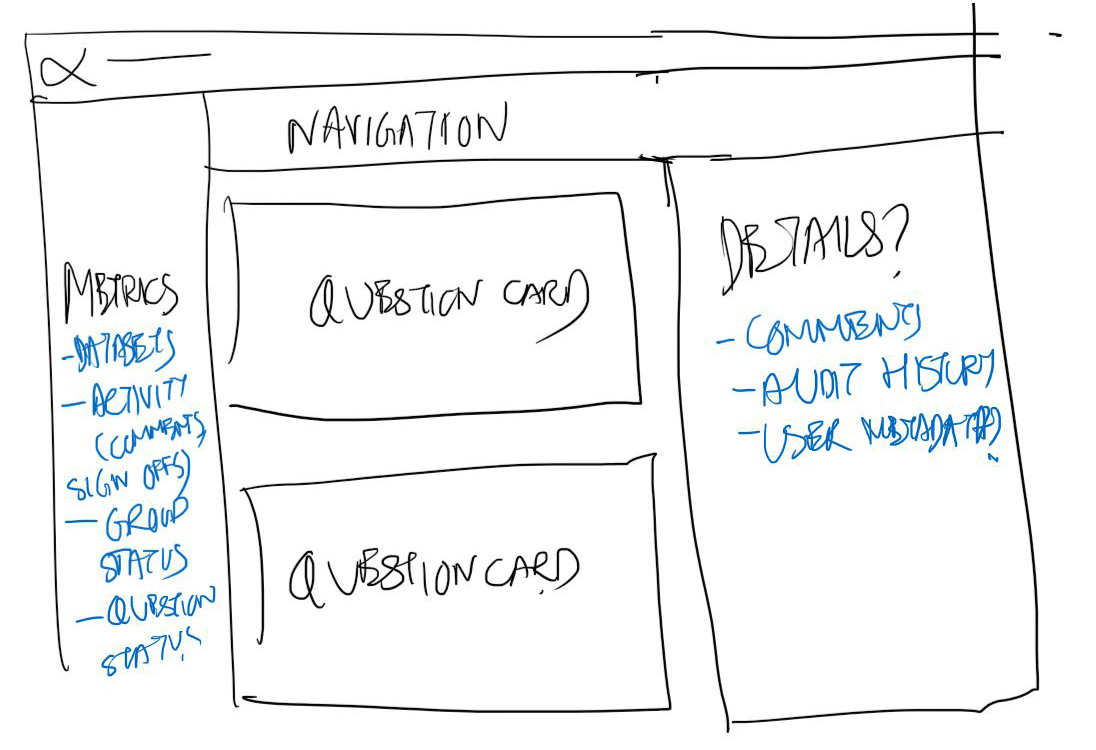 α
NAVIGATION
METRICS
- DATASETS
- ACTIVITY
(COMMENTS,
SIGN OFFS)
- GROUP
STATUS
- QUESTION
STATUS
QUESTION CARD
QUESTION CARD
DETAILS?
- COMMENTS
- AUDIT HISTORY
- USER METADATA